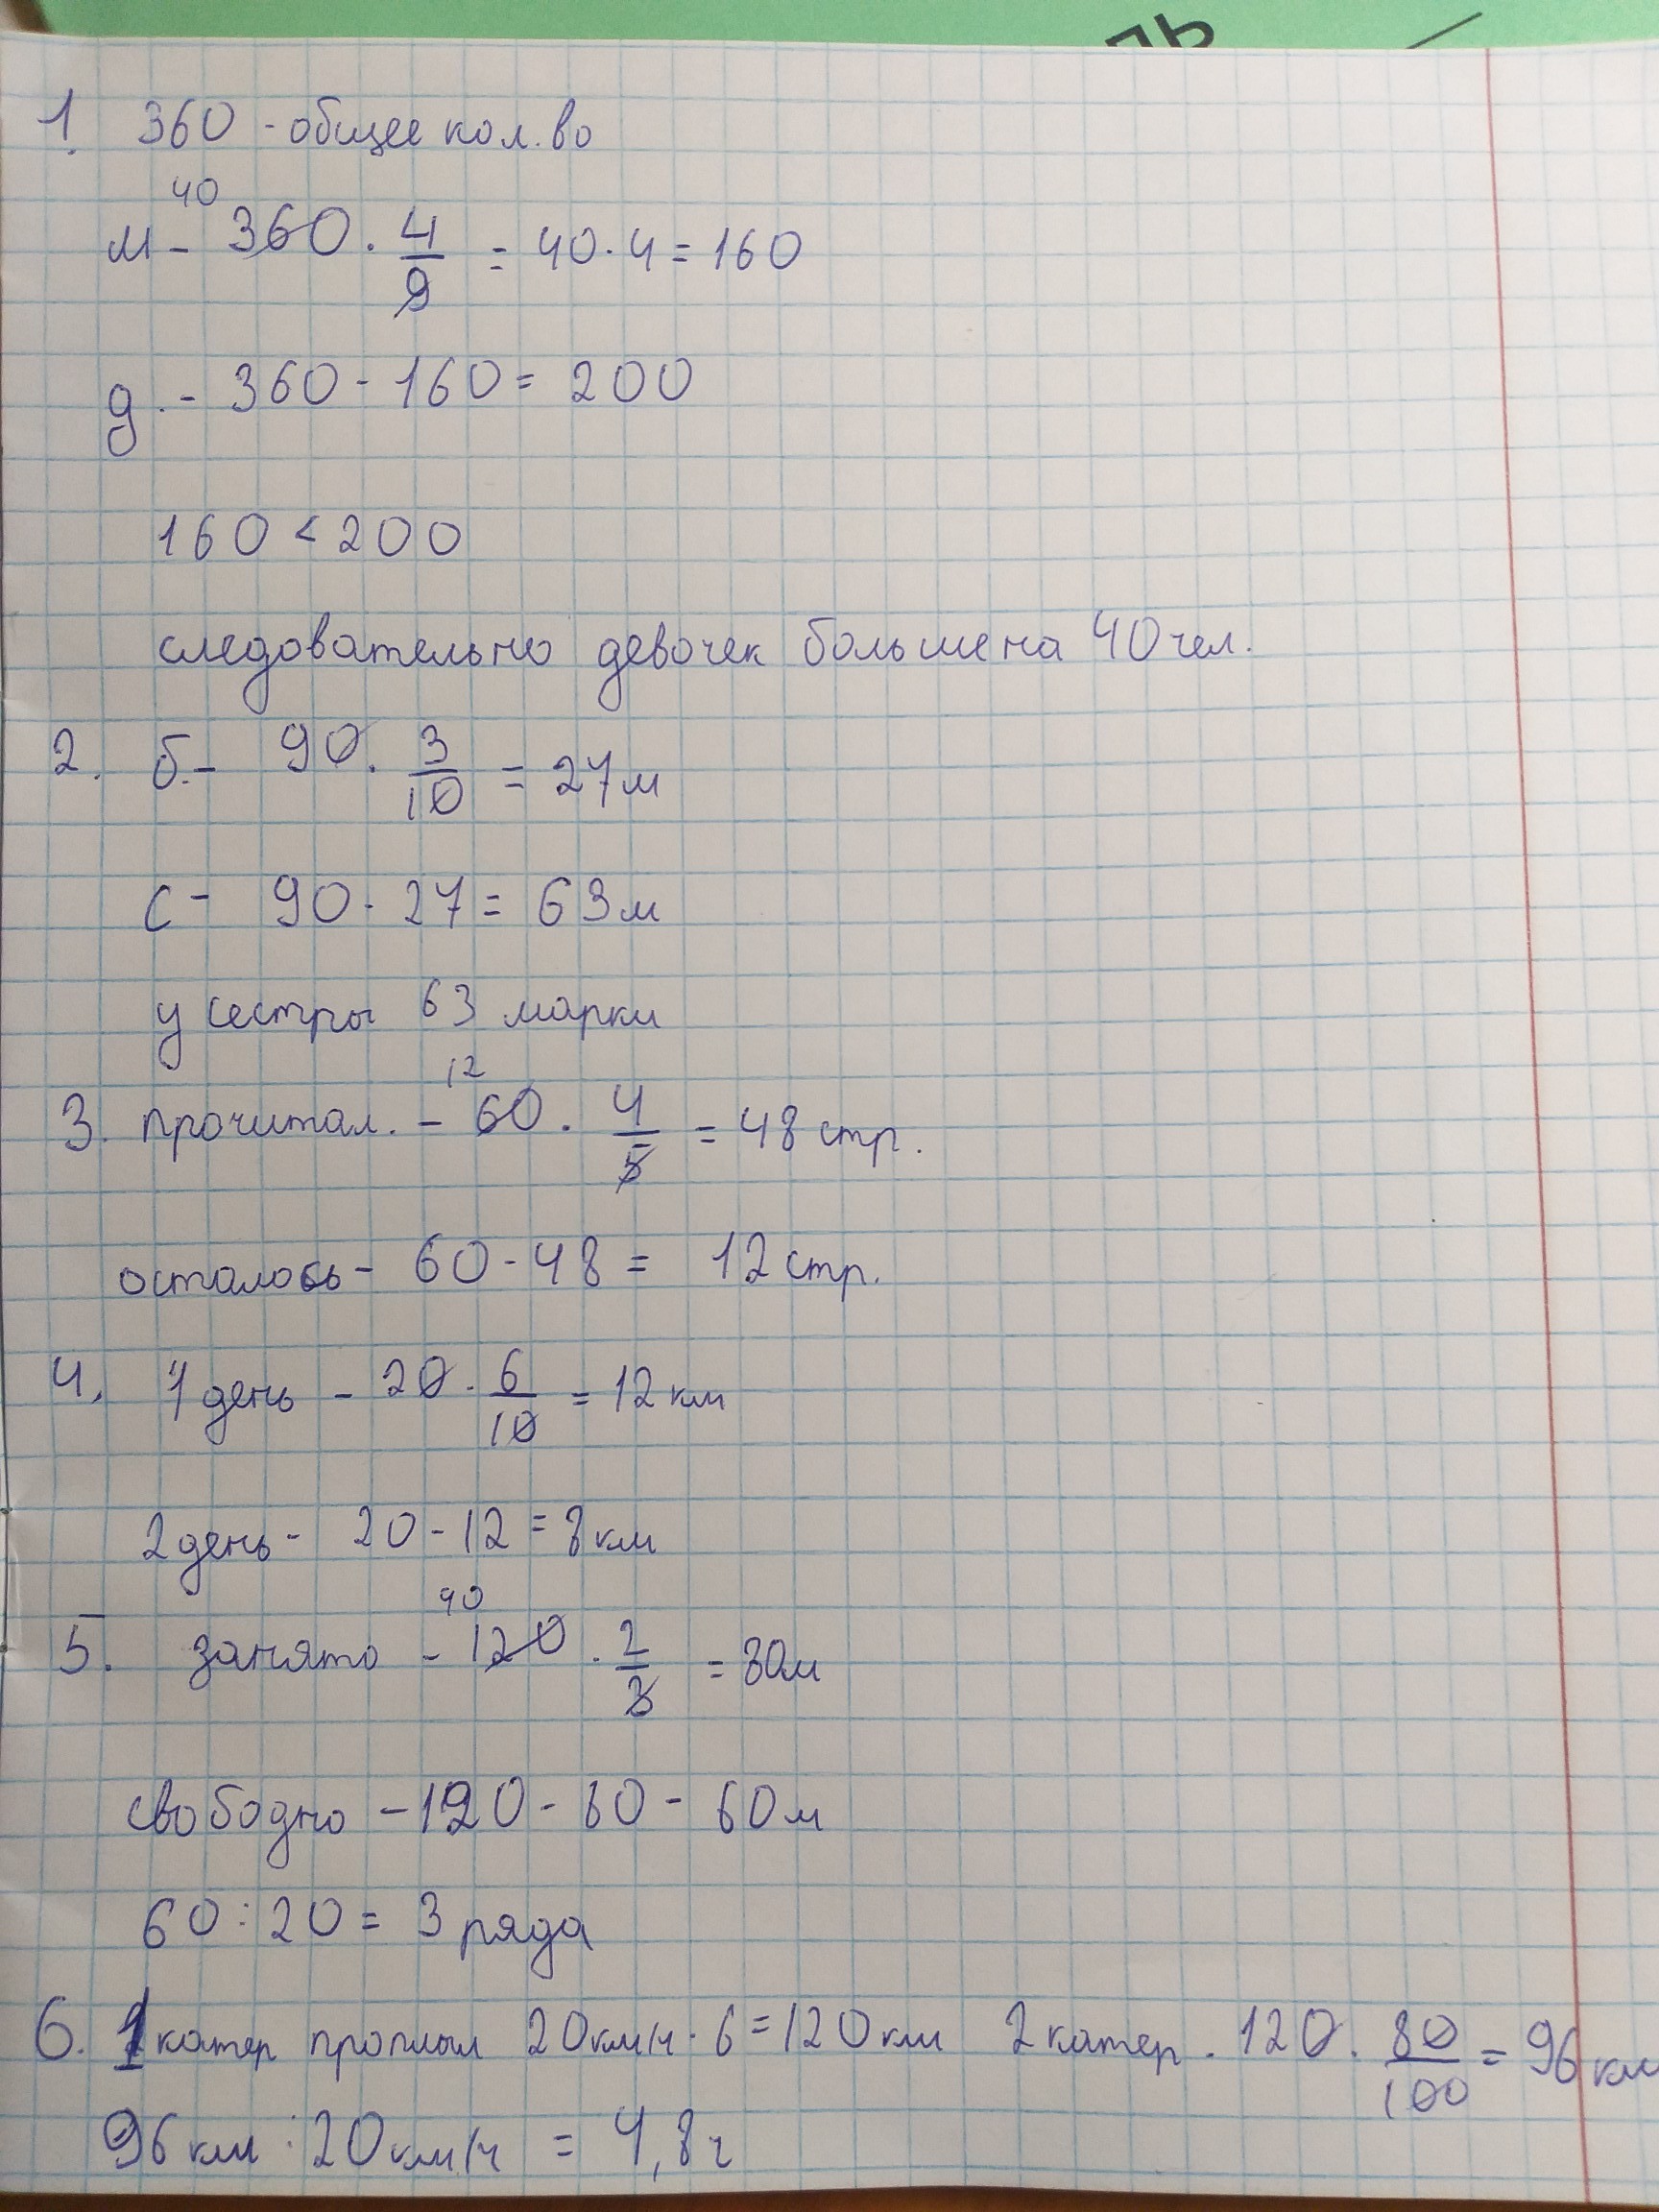 ль
1. 360 - общее кол.во
40
м - 360 · 4/9 = 40 · 4 = 160
д. - 360 - 160 = 200
160 < 200
следовательно девочек больше на 40 чел.
2. б. - 90 · 3/10 = 27 м
с - 90 - 27 = 63 м
у сестры 63 марки
12
3. прочитал. - 60 · 4/5 = 48 стр.
осталось - 60 - 48 = 12 стр.
4. 1 день - 20 · 6/10 = 12 км
2 день - 20 - 12 = 8 км
40
5. занято - 120 · 2/3 = 80 м
свободно - 120 - 60 - 60 м
60 : 20 = 3 ряда
6. 1 катер проплыл 20 км/ч · 6 = 120 км 2 катер - 120 · 80/100 = 96 км
96 км : 20 км/ч = 4,8 ч